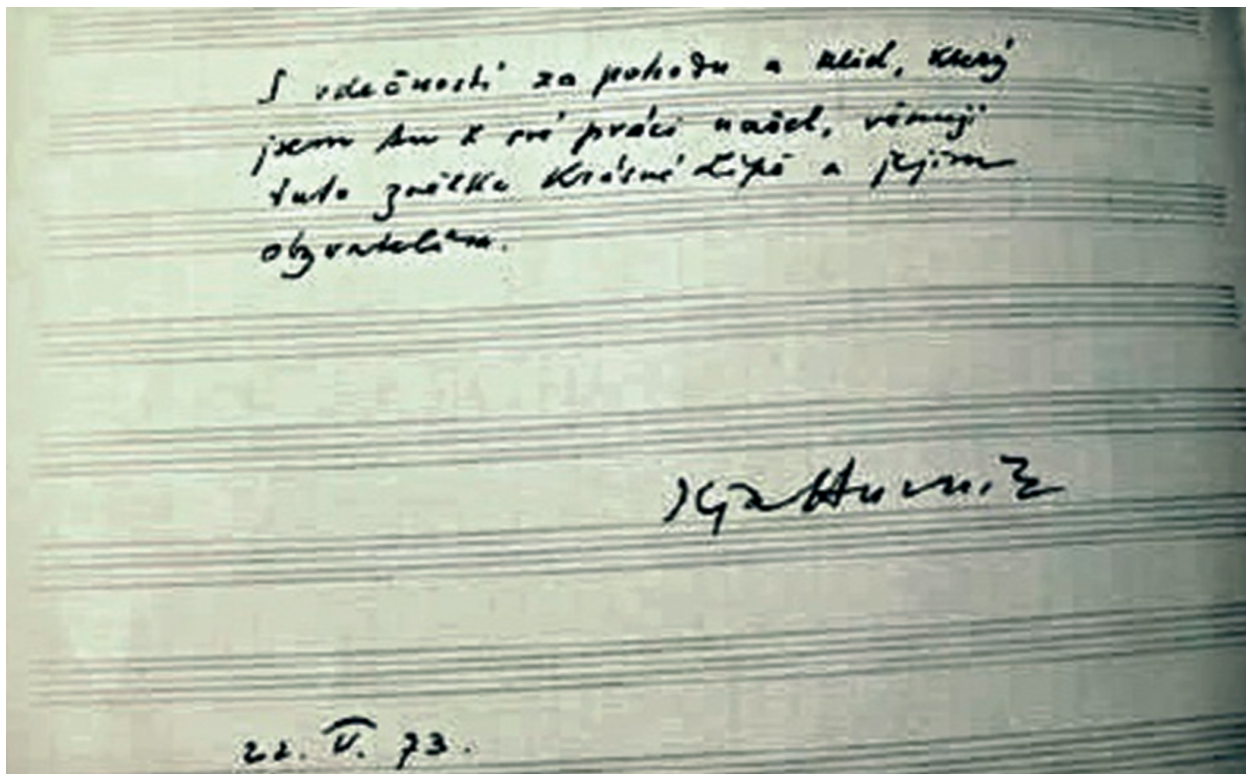 S vděčností za pohodu a klid, který
jsem tu k své práci našel, věnuji
tuto znělku Krásné Lípě a jejím
obyvatelům.
Ilja Hurník
22. V. 73.